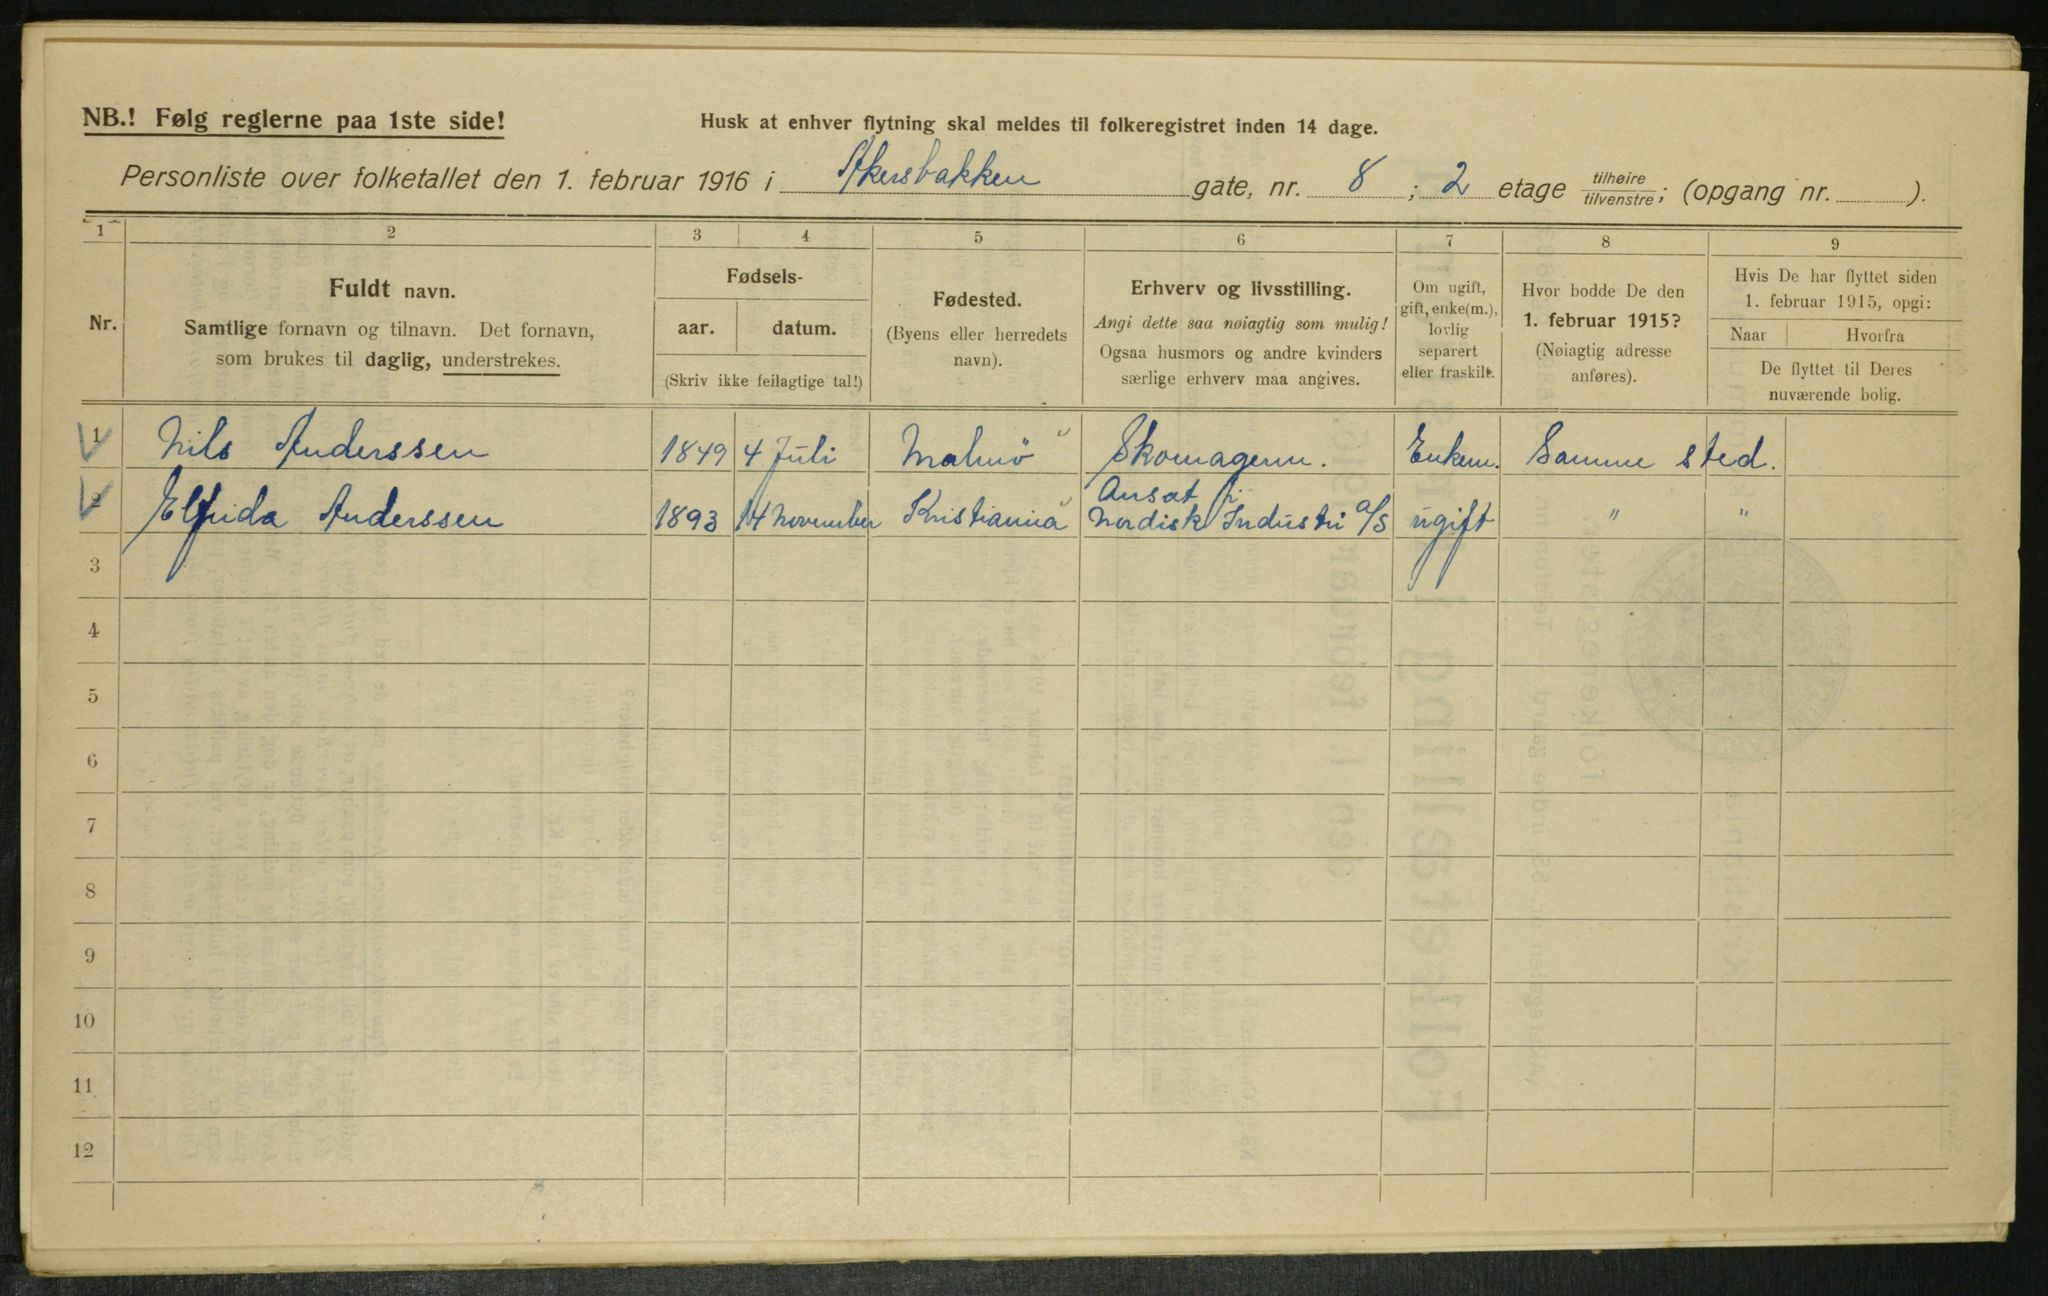 NB.! Følg reglerne paa 1ste side!
Husk at enhver flytning skal meldes til folkeregistret inden 14 dage.
Personliste over folketallet den 1. februar 1916 i Akersbakken gate, nr. 8 ; 2 etage tilhøire/tilvenstre; (opgang nr. ).
1 2 3 4 5 6 7 8 9
Nr.
Fuldt navn.
Samtlige fornavn og tilnavn. Det fornavn,
som brukes til daglig, understrekes.
Fødsels-
aar. datum.
(Skriv ikke feilagtige tal!)
Fødested.
(Byens eller herredets
navn).
Erhverv og livsstilling.
Angi dette saa nøiagtig som mulig!
Ogsaa husmors og andre kvinders
særlige erhverv maa angives.
Om ugift,
gift, enke(m.),
lovlig
separert
eller fraskilt.
Hvor bodde De den
1. februar 1915?
(Nøiagtig adresse
anføres).
Hvis De har flyttet siden
1. februar 1915, opgi:
Naar Hvorfra
De flyttet til Deres
nuværende bolig.
1 Nils Anderssen 1849 4 Juli Malmö Skomagerm. Enkem. Samme sted.
2 Elfrida Anderssen 1893 14 November Kristiania Ansat i
Nordisk Industri A/S ugift " "
3
4
5
6
7
8
9
10
11
12